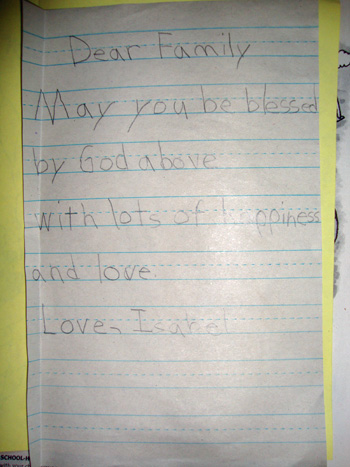 Dear Family
May you be blessed
by God above
with lots of happiness
and love.
Love, Isabel
SCHOOL-H